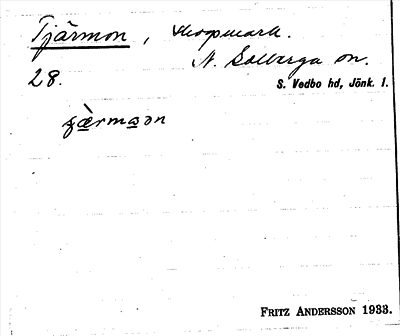 Tjärmon, skogsmark.
N. Solberga sn.
28. S. Vedbo hd, Jönk. l.
FRITZ ANDERSSON 1933.